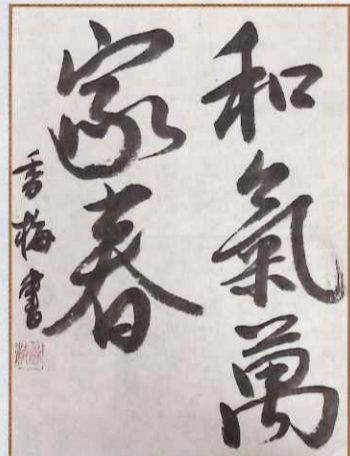 和氣萬
家春
香梅書